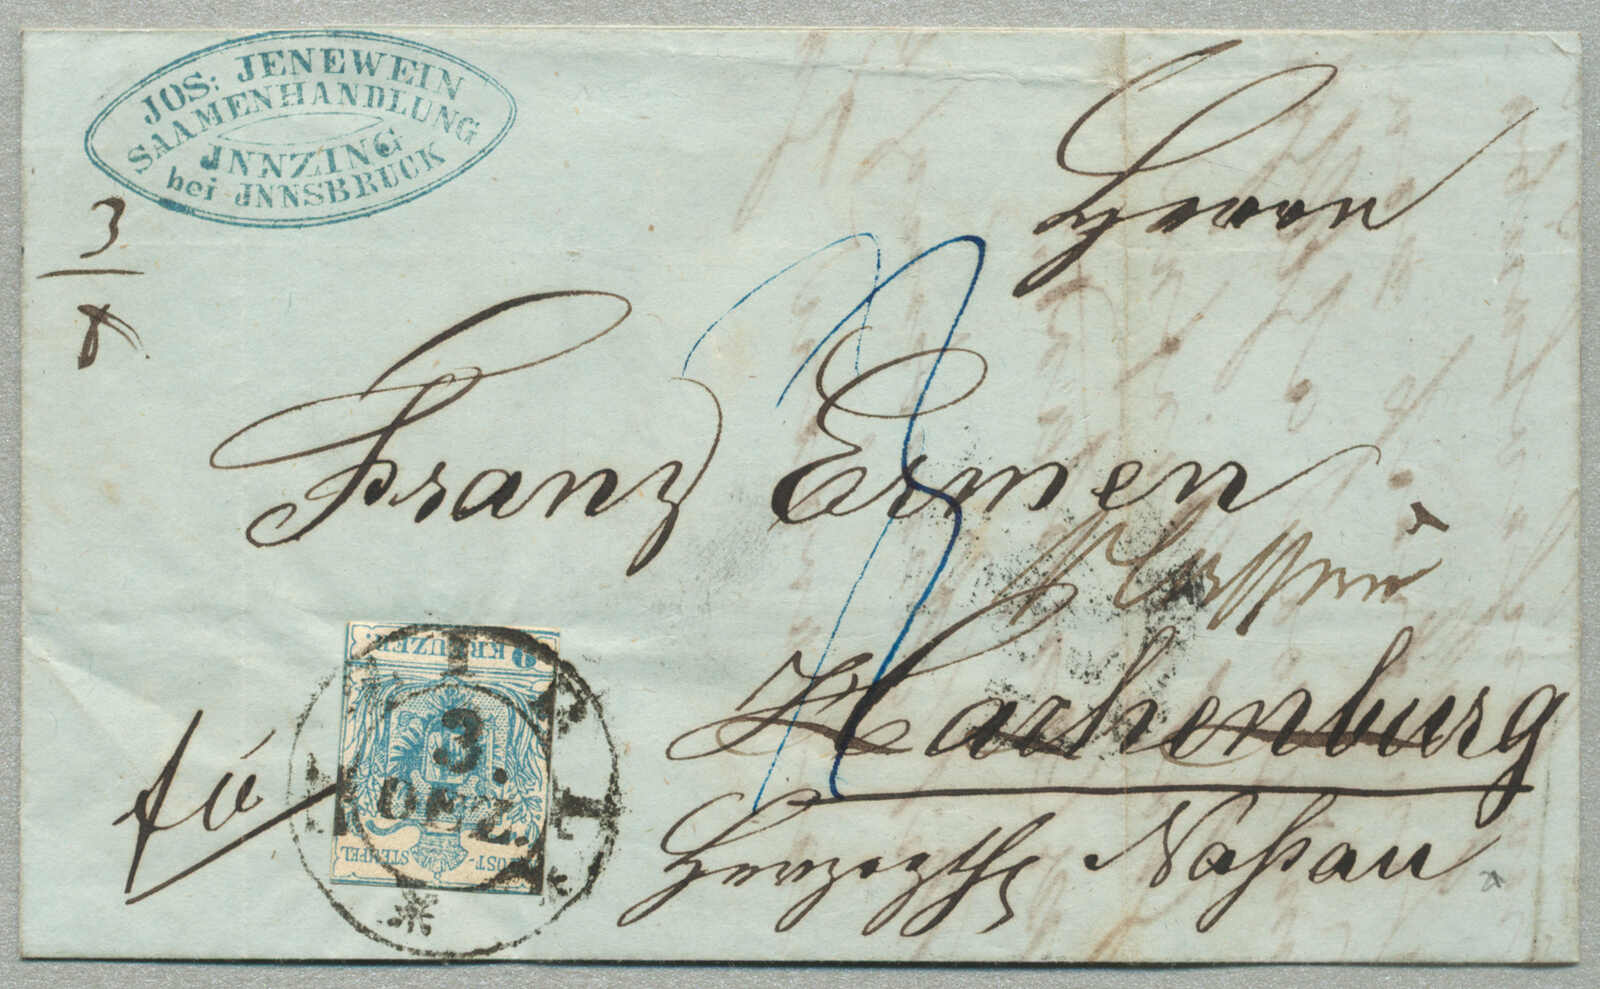 JOS: JENEWEIN
SAAMENHANDLUNG
JNNZING
bei JNNSBRUCK
3
8
Herrn
Franz Ermen
Hachenburg
Herzogth Naßau
fco
9 KREUZER.
POST-STEMPEL
3.
MAERZ.